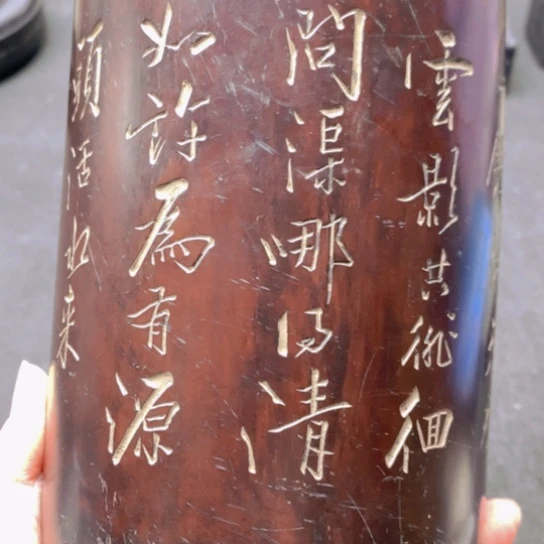 雲影共徘徊
問渠哪得清
如許為有源
頭活水来